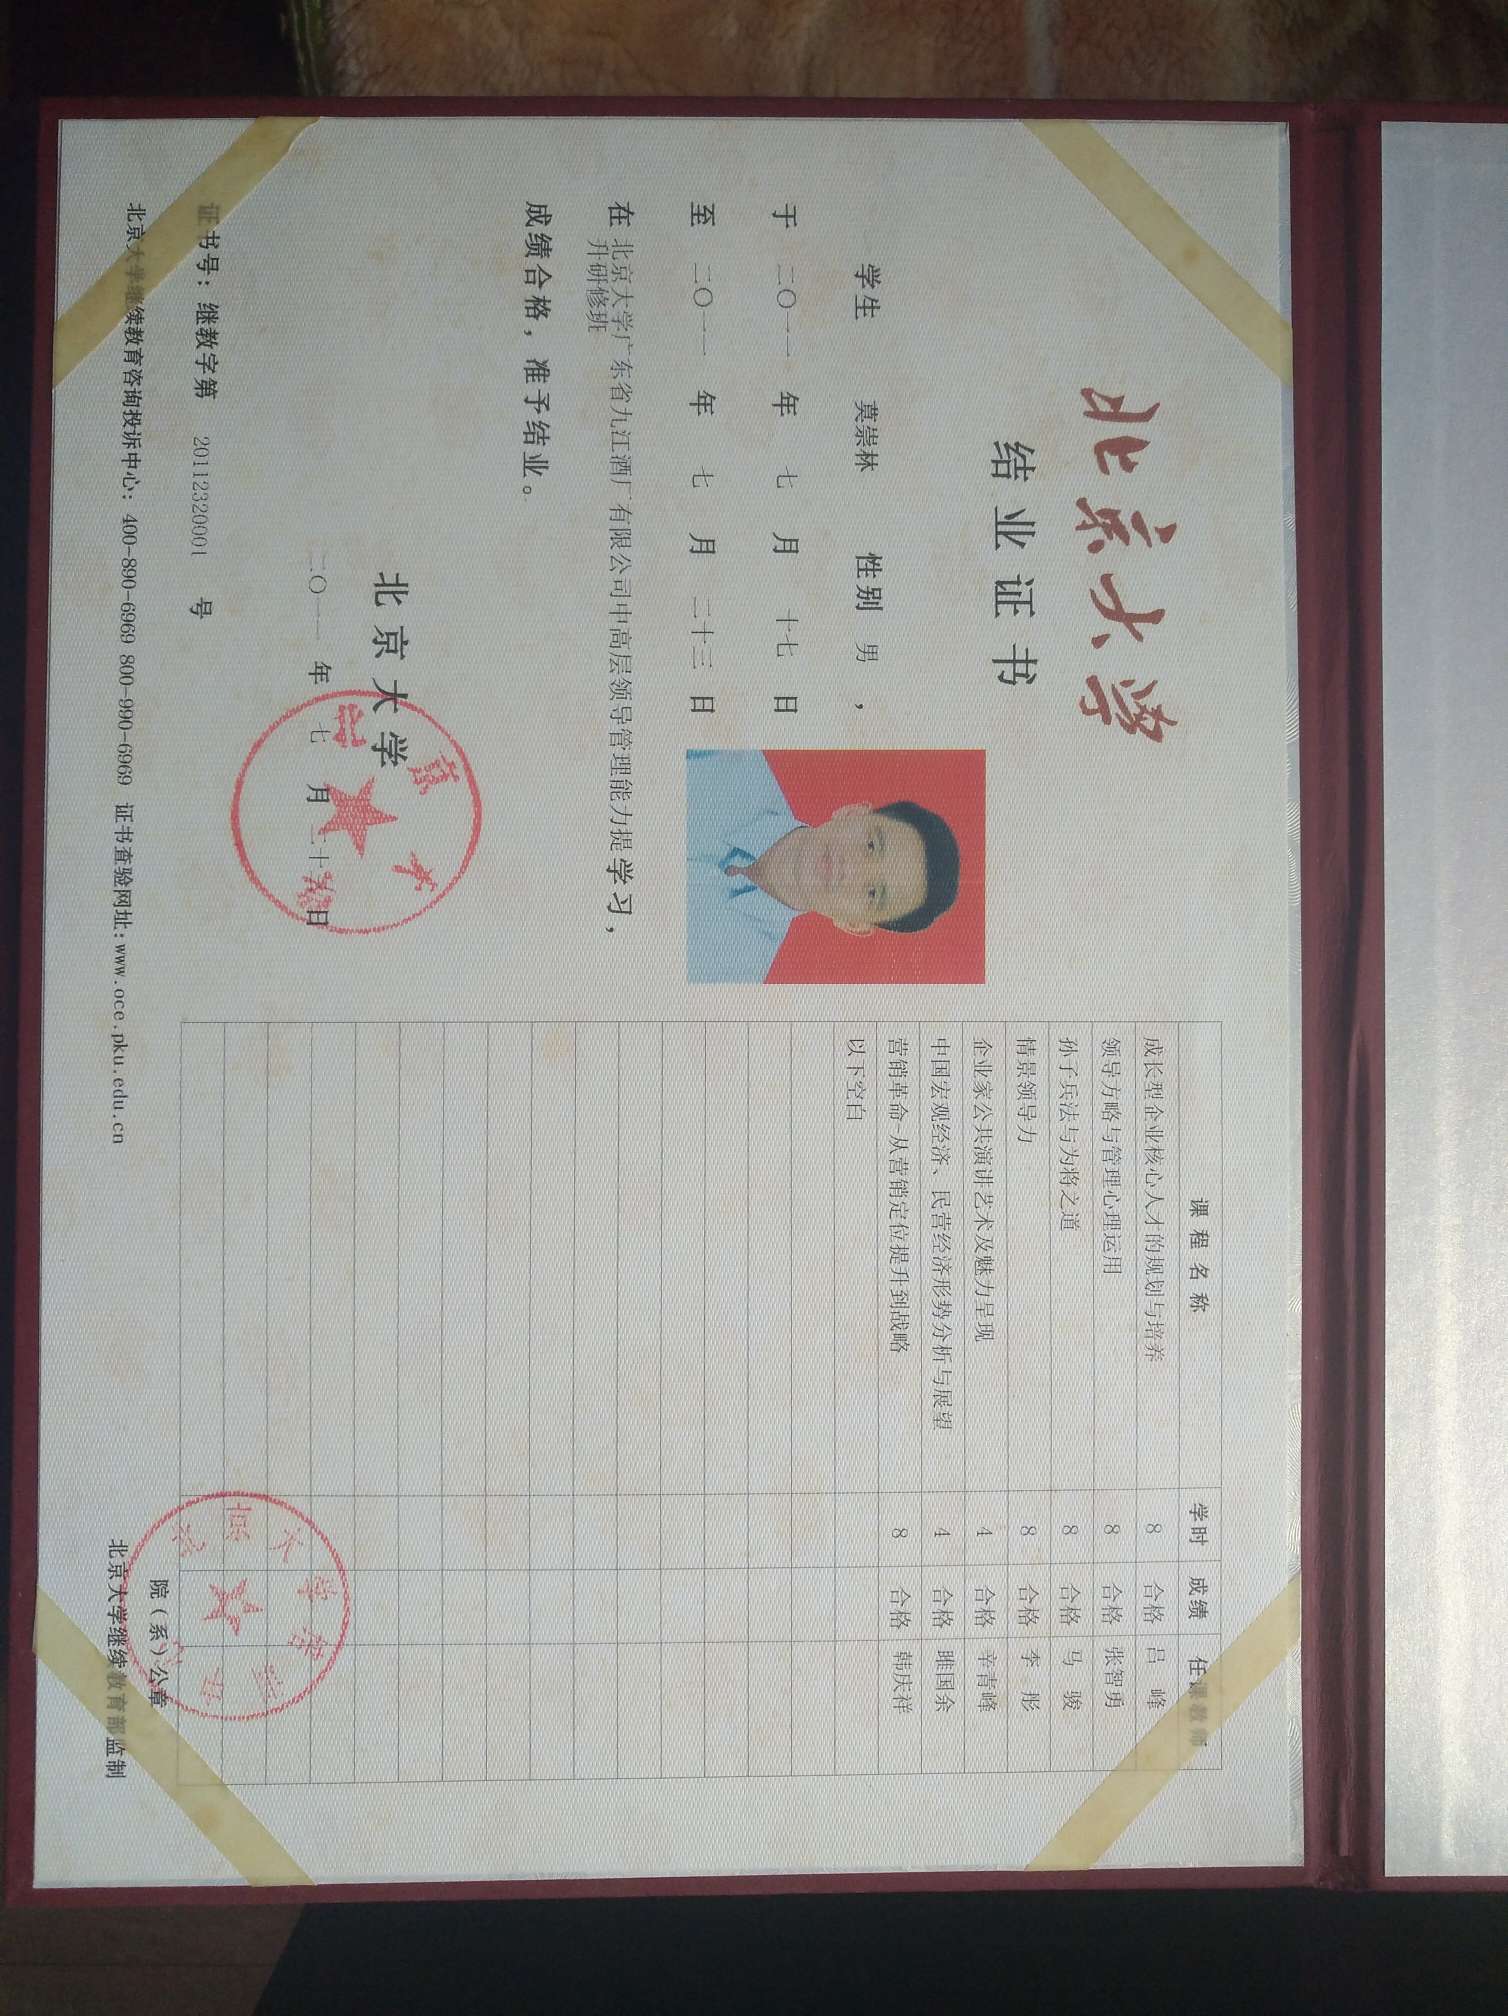 北京大学
结业证书
学生 莫崇林 性别 男，
于 二〇一一 年 七 月 十七 日
至 二〇一一 年 七 月 二十三 日
在 北京大学广东省九江酒厂有限公司中高层领导管理能力提升研修班 学习，
成绩合格，准予结业。
北京大学
二〇一一 年 七 月 二十 日
证书号：继教字第 20112320001 号
北京大学继续教育咨询投诉中心：400-890-6969 800-990-6969 证书查验网址：www.oce.pku.edu.cn
课程名称 学时 成绩 任课教师
成长型企业核心人才的规划与培养 8 合格 吕 峰
领导方略与管理心理运用 8 合格 张智勇
孙子兵法与为将之道 8 合格 马 骏
情景领导力 8 合格 李 彤
企业家公共演讲艺术及魅力呈现 4 合格 辛青峰
中国宏观经济、民营经济形势分析与展望 4 合格 雎国余
营销革命-从营销定位提升到战略 8 合格 韩庆祥
以下空白
院（系）公章
北京大学继续教育部监制